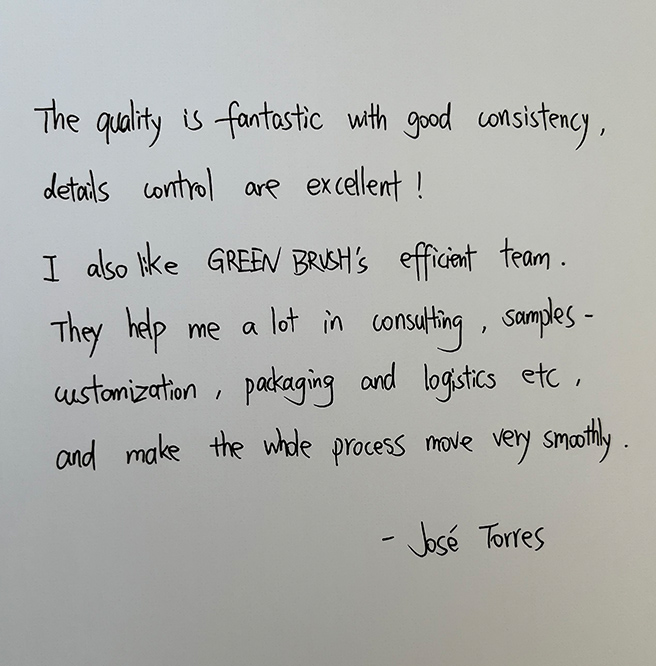 The quality is fantastic with good consistency,
details control are excellent!
I also like GREEN BRUSH's efficient team.
They help me a lot in consulting, samples-
customization, packaging and logistics etc,
and make the whole process move very smoothly.
- José Torres